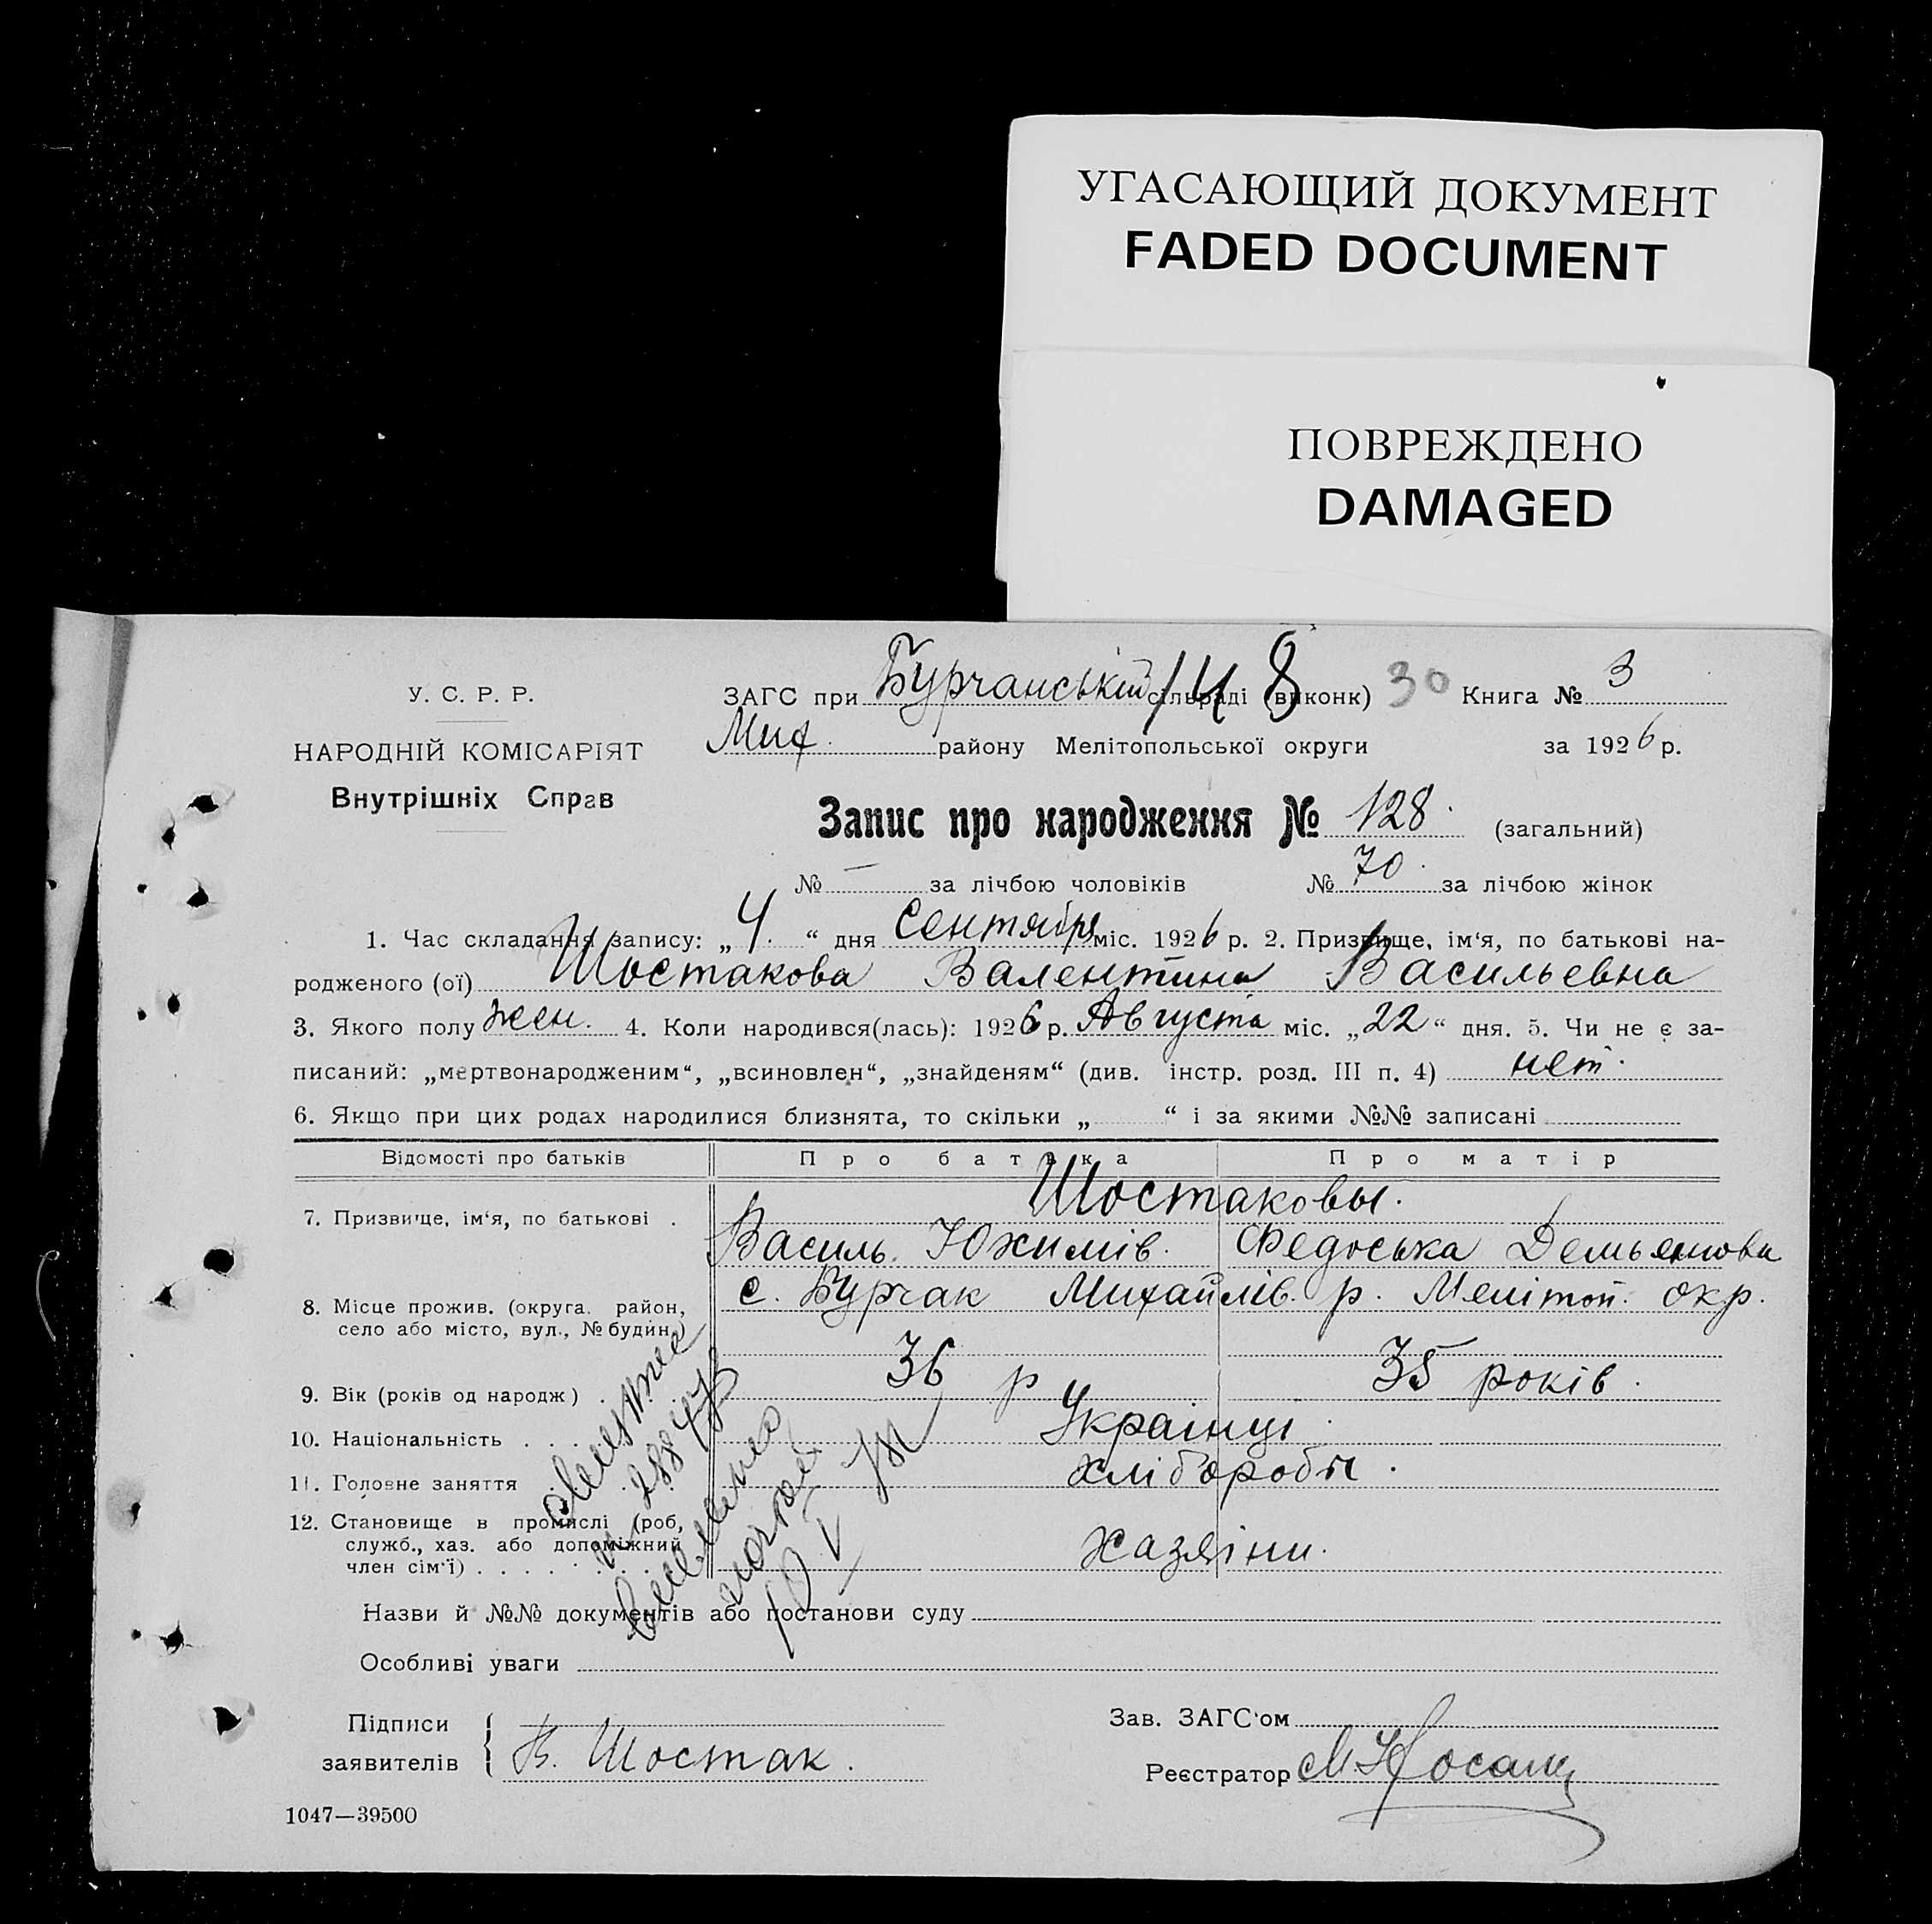 УГАСАЮЩИЙ ДОКУМЕНТ
FADED DOCUMENT
ПОВРЕЖДЕНО
DAMAGED
У. С. Р. Р.
НАРОДНІЙ КОМІСАРІЯТ
Внутрішніх Справ
ЗАГС при Бурчанській сільраді (виконк) 30 Книга № 3
Мих. району Мелітопольської округи за 1926 р.
Запис про народження № 128. (загальний)
№ — за лічбою чоловіків № 70. за лічбою жінок
1. Час складання запису: „4“ дня Сентября міс. 1926 р. 2. Призвище, ім‘я, по батькові на-
родженого (ої) Шостакова Валентина Васильевна
3. Якого полу жен. 4. Коли народився(лась): 1926 р. Августа міс. „22“ дня. 5. Чи не є за-
писаний: „мертвонародженим“, „всиновлен“, „знайденям“ (див. інстр. розд. III п. 4) нет.
6. Якщо при цих родах народилися близнята, то скільки „ “ і за якими №№ записані
Відомості про батьків Про батька Про матір
Шостаковы.
7. Призвище, ім‘я, по батькові .
Василь Юхимів. Федоська Демьянова
с. Бурчак Михайлів. р. Меліто́п. окр.
8. Місце прожив. (округа, район,
село або місто, вул., № будин.)
9. Вік (років од народж) . 36 р 35 років.
10. Національність . . Українці.
11. Головне заняття Хлібороби.
12. Становище в промислі (роб,
служб., хаз. або допоміжний
член сім‘ї) . . . . . Хазяіни.
Назви й №№ документів або постанови суду
Особливі уваги
Підписи
заявителів В. Шостак.
Зав. ЗАГС‘ом
Реєстратор
1047—39500